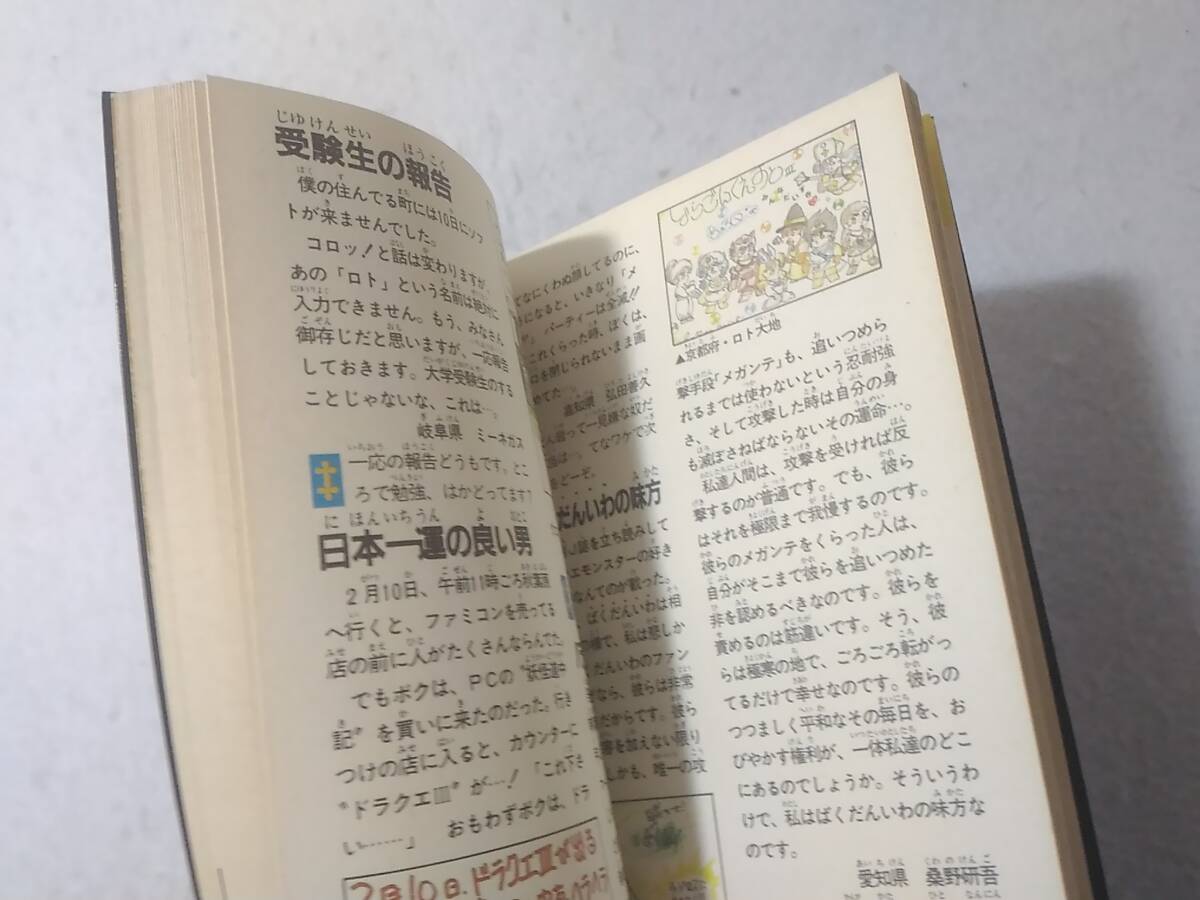 受験生の報告
僕の住んでる町には10日にソフ
トが来ませんでした。
コロッ!と話は変わりますが、
あの「ロト」という名前は絶対に
入力できません。もう、みなさん
御存じだと思いますが、一応報告
しておきます。大学受験生のする
ことじゃないな、これは…。
岐阜県 ミーネガス
一応の報告どうもです。とこ
ろで勉強、はかどってます?
日本一運の良い男
2月10日、午前11時ごろ秋葉原
へ行くと、ファミコンを売ってる
店の前に人がたくさんならんでた。
でもボクは、PCの“妖怪道中
記”を買いに来たのだった。行き
つけの店に入ると、カウンターに
“ドラクエⅢ”が…!「これ下さ
い……」 おもわずボクは、ドラ
2月10日、ドラクエⅢが出る
てなにくわぬ顔してるのに、
になると、いきなり「メ
パーティーは全滅!!
これくらった時、ぼくは、
口を閉じられないまま画
めてた
高知県 弘田善久
って一見嫌な奴だ
てなワケで次
どーぞ。
だんいわの味方
誌を立ち読みして
エモンスターの好き
なんてのが載った。
ばくだんいわは相
様で、私は悲しか
だんいわのファン
なら、彼らは非常
だからです。彼ら
害を加えない限り
しかも、唯一の攻
どらごんくえすとⅢ
▲京都府・ロト大地
撃手段「メガンテ」も、追いつめら
れるまでは使わないという忍耐強
さ、そして攻撃した時は自分の身
も滅ぼさねばならないその運命…。
私達人間は、攻撃を受ければ反
撃するのが普通です。でも、彼ら
はそれを極限まで我慢するのです。
彼らのメガンテをくらった人は、
自分がそこまで彼らを追いつめた
非を認めるべきなのです。彼らを
責めるのは筋違いです。そう、彼
らは極寒の地で、ごろごろ転がっ
てるだけで幸せなのです。彼らの
つつましく平和なその毎日を、お
びやかす権利が、一体私達のどこ
にあるのでしょうか。そういうわ
けで、私はばくだんいわの味方な
のです。
愛知県 桑野研吾